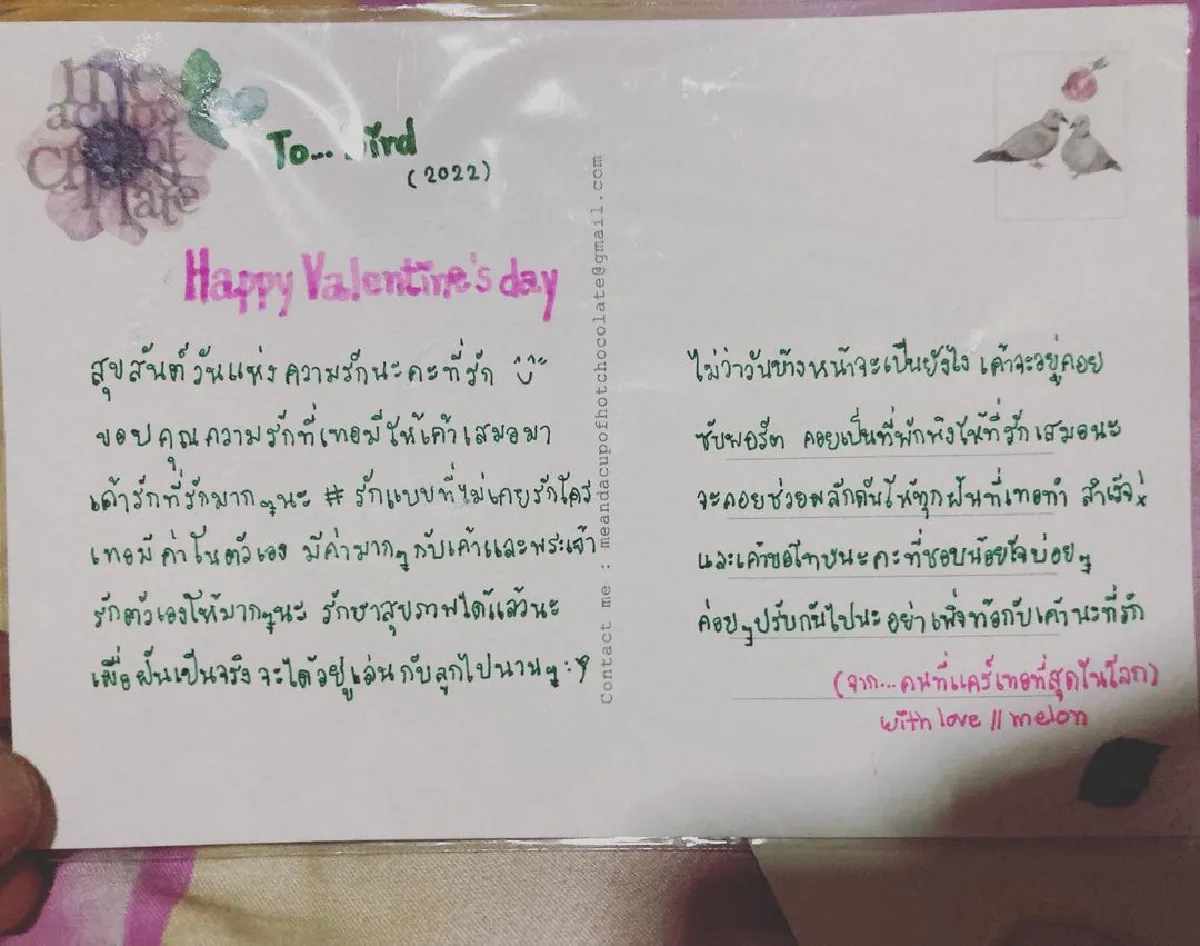 me &
a cup of
hot
Chocolate
To... Bird
(2022)
Happy Valentine's day
สุขสันต์วันแห่งความรักนะคะที่รัก
ขอบคุณความรักที่เทอมีให้เค้าเสมอมา
เค้ารักที่รักมากๆนะ # รักแบบที่ไม่เคยรักใคร
เทอมีค่าในตัวเอง มีค่ามากๆกับเค้าและพระเจ้า
รักตัวเองให้มากๆนะ รักษาสุขภาพได้แล้วนะ
เผื่อฝันเป็นจริงจะได้อยู่เล่นกับลูกไปนานๆ :)
Contact me : meandacupofhotchocolate@gmail.com
ไม่ว่าวันข้างหน้าจะเป็นยังไง เค้าจะอยู่คอย
ซับพอร์ต คอยเป็นที่พักพิงให้ที่รักเสมอนะ
จะคอยช่วยผลักดันให้ทุกฝันที่เทอทำ สำเร็จ
และเค้าขอโทษนะคะที่ชอบน้อยใจบ่อยๆ
ค่อยๆปรับกันไปนะ อย่าเพิ่งท้อกับเค้านะที่รัก
(จาก...คนที่แคร์เทอที่สุดในโลก)
with love // melon